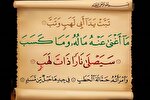 تَبَّتْ يَدَا أَبِي لَهَبٍ وَتَبَّ
مَا أَغْنَىٰ عَنْهُ مَالُهُ وَمَا كَسَبَ
سَيَصْلَىٰ نَارًا ذَاتَ لَهَبٍ
وَامْرَأَتُهُ حَمَّالَةَ الْحَطَبِ فِي جِيدِهَا حَبْلٌ مِنْ مَسَدٍ